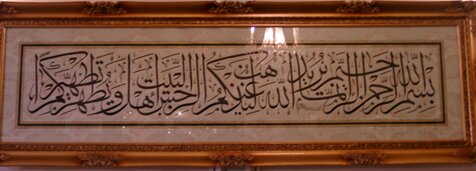 بسم الله الرحمن الرحيم إنما يريد الله ليذهب عنكم الرجس أهل البيت ويطهركم تطهيرا